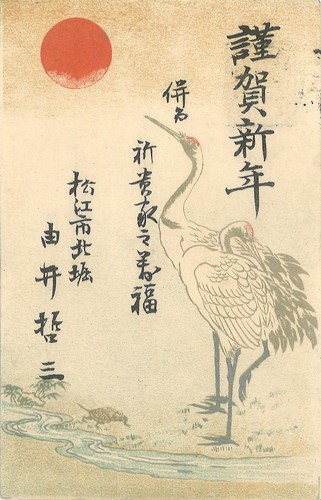 謹賀新年
併而
祈貴家之萬福
松江市北堀
由井哲三